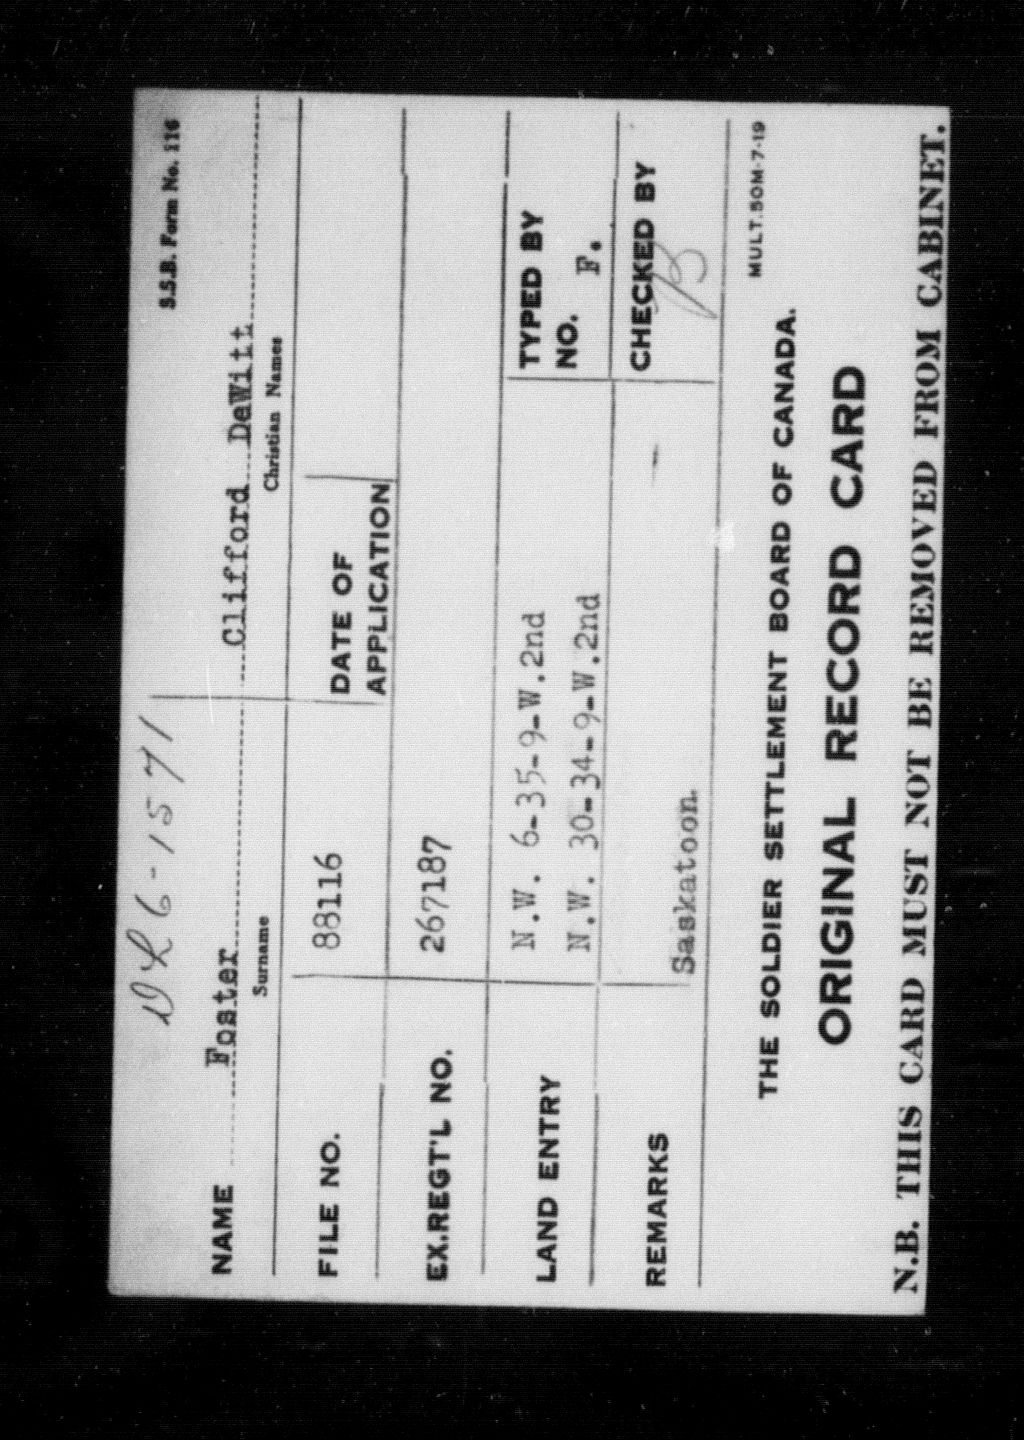 S.S.B. Form No. 116
DR6-1571
NAME Foster Clifford DeWitt
Surname Christian Names
FILE NO. 88116 DATE OF APPLICATION
EX.REGT'L NO. 267187
LAND ENTRY N.W. 6-35-9-W.2nd
N.W. 30-34-9-W.2nd
TYPED BY
NO. F.
REMARKS Saskatoon.
CHECKED BY B
MULT.50M-7-19
THE SOLDIER SETTLEMENT BOARD OF CANADA.
ORIGINAL RECORD CARD
N.B. THIS CARD MUST NOT BE REMOVED FROM CABINET.